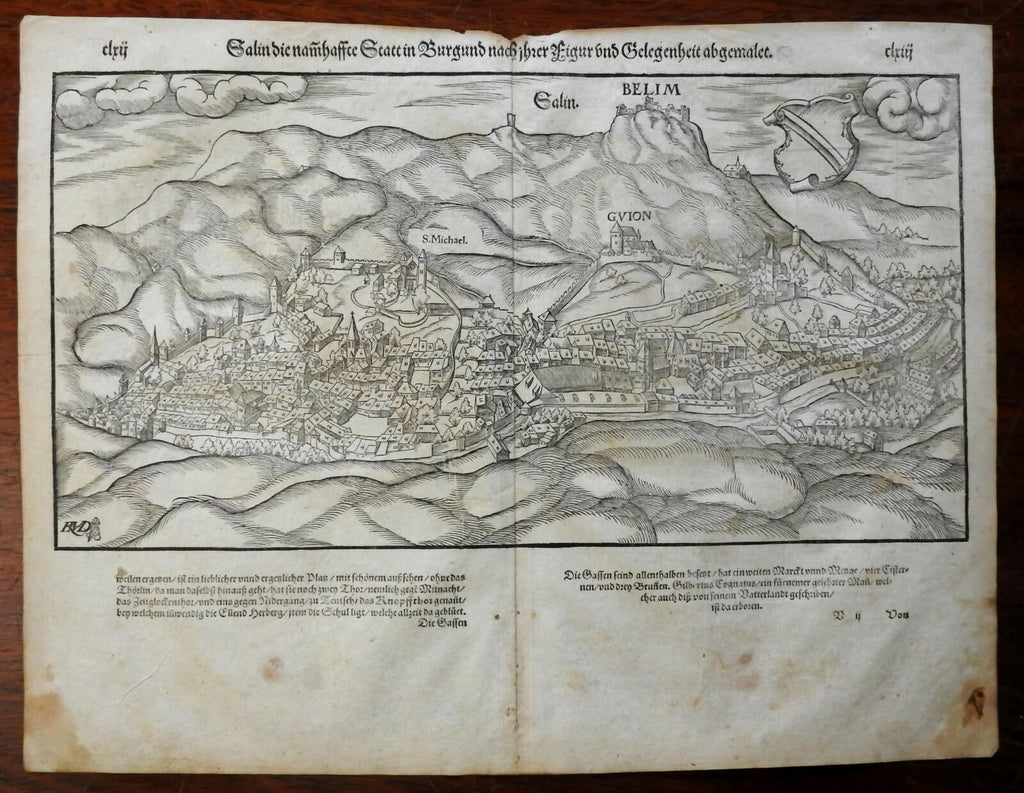 clxij
Salin die nam̃haffte Statt in Burgund nach jhrer Figur vnd Gelegenheit abgemalet.
clxiij
BELIM
Salin.
GVION
S. Michael.
HMD
weilen ergeben / ist ein lieblicher vnnd ergetzlicher Platz / mit schönem außsehen / ohne das
Thörlin / da man daselbst hinauß geht / hat sie noch zwey Thor / nemlich gegẽ Mitnacht /
das Zeitglockenthor / vnd eins gegen Nidergang / zu Teutsch / das Knopffthor genañt /
bey welchem inwendig die Ellend Herberg / item die Schul ligt / welche allzeit da geblüet.
Die Gassen
Die Gassen seind allenthalben besetzt / hat ein weiten Marckt vnnd
vier Cister-
nen / vnd drey Bruñen. Gilbertus Cognatus / ein fürnemer gelehrter Mañ / wel-
cher auch diß von seinem Vatterlandt geschriben /
ist da erboren.
V ij Von